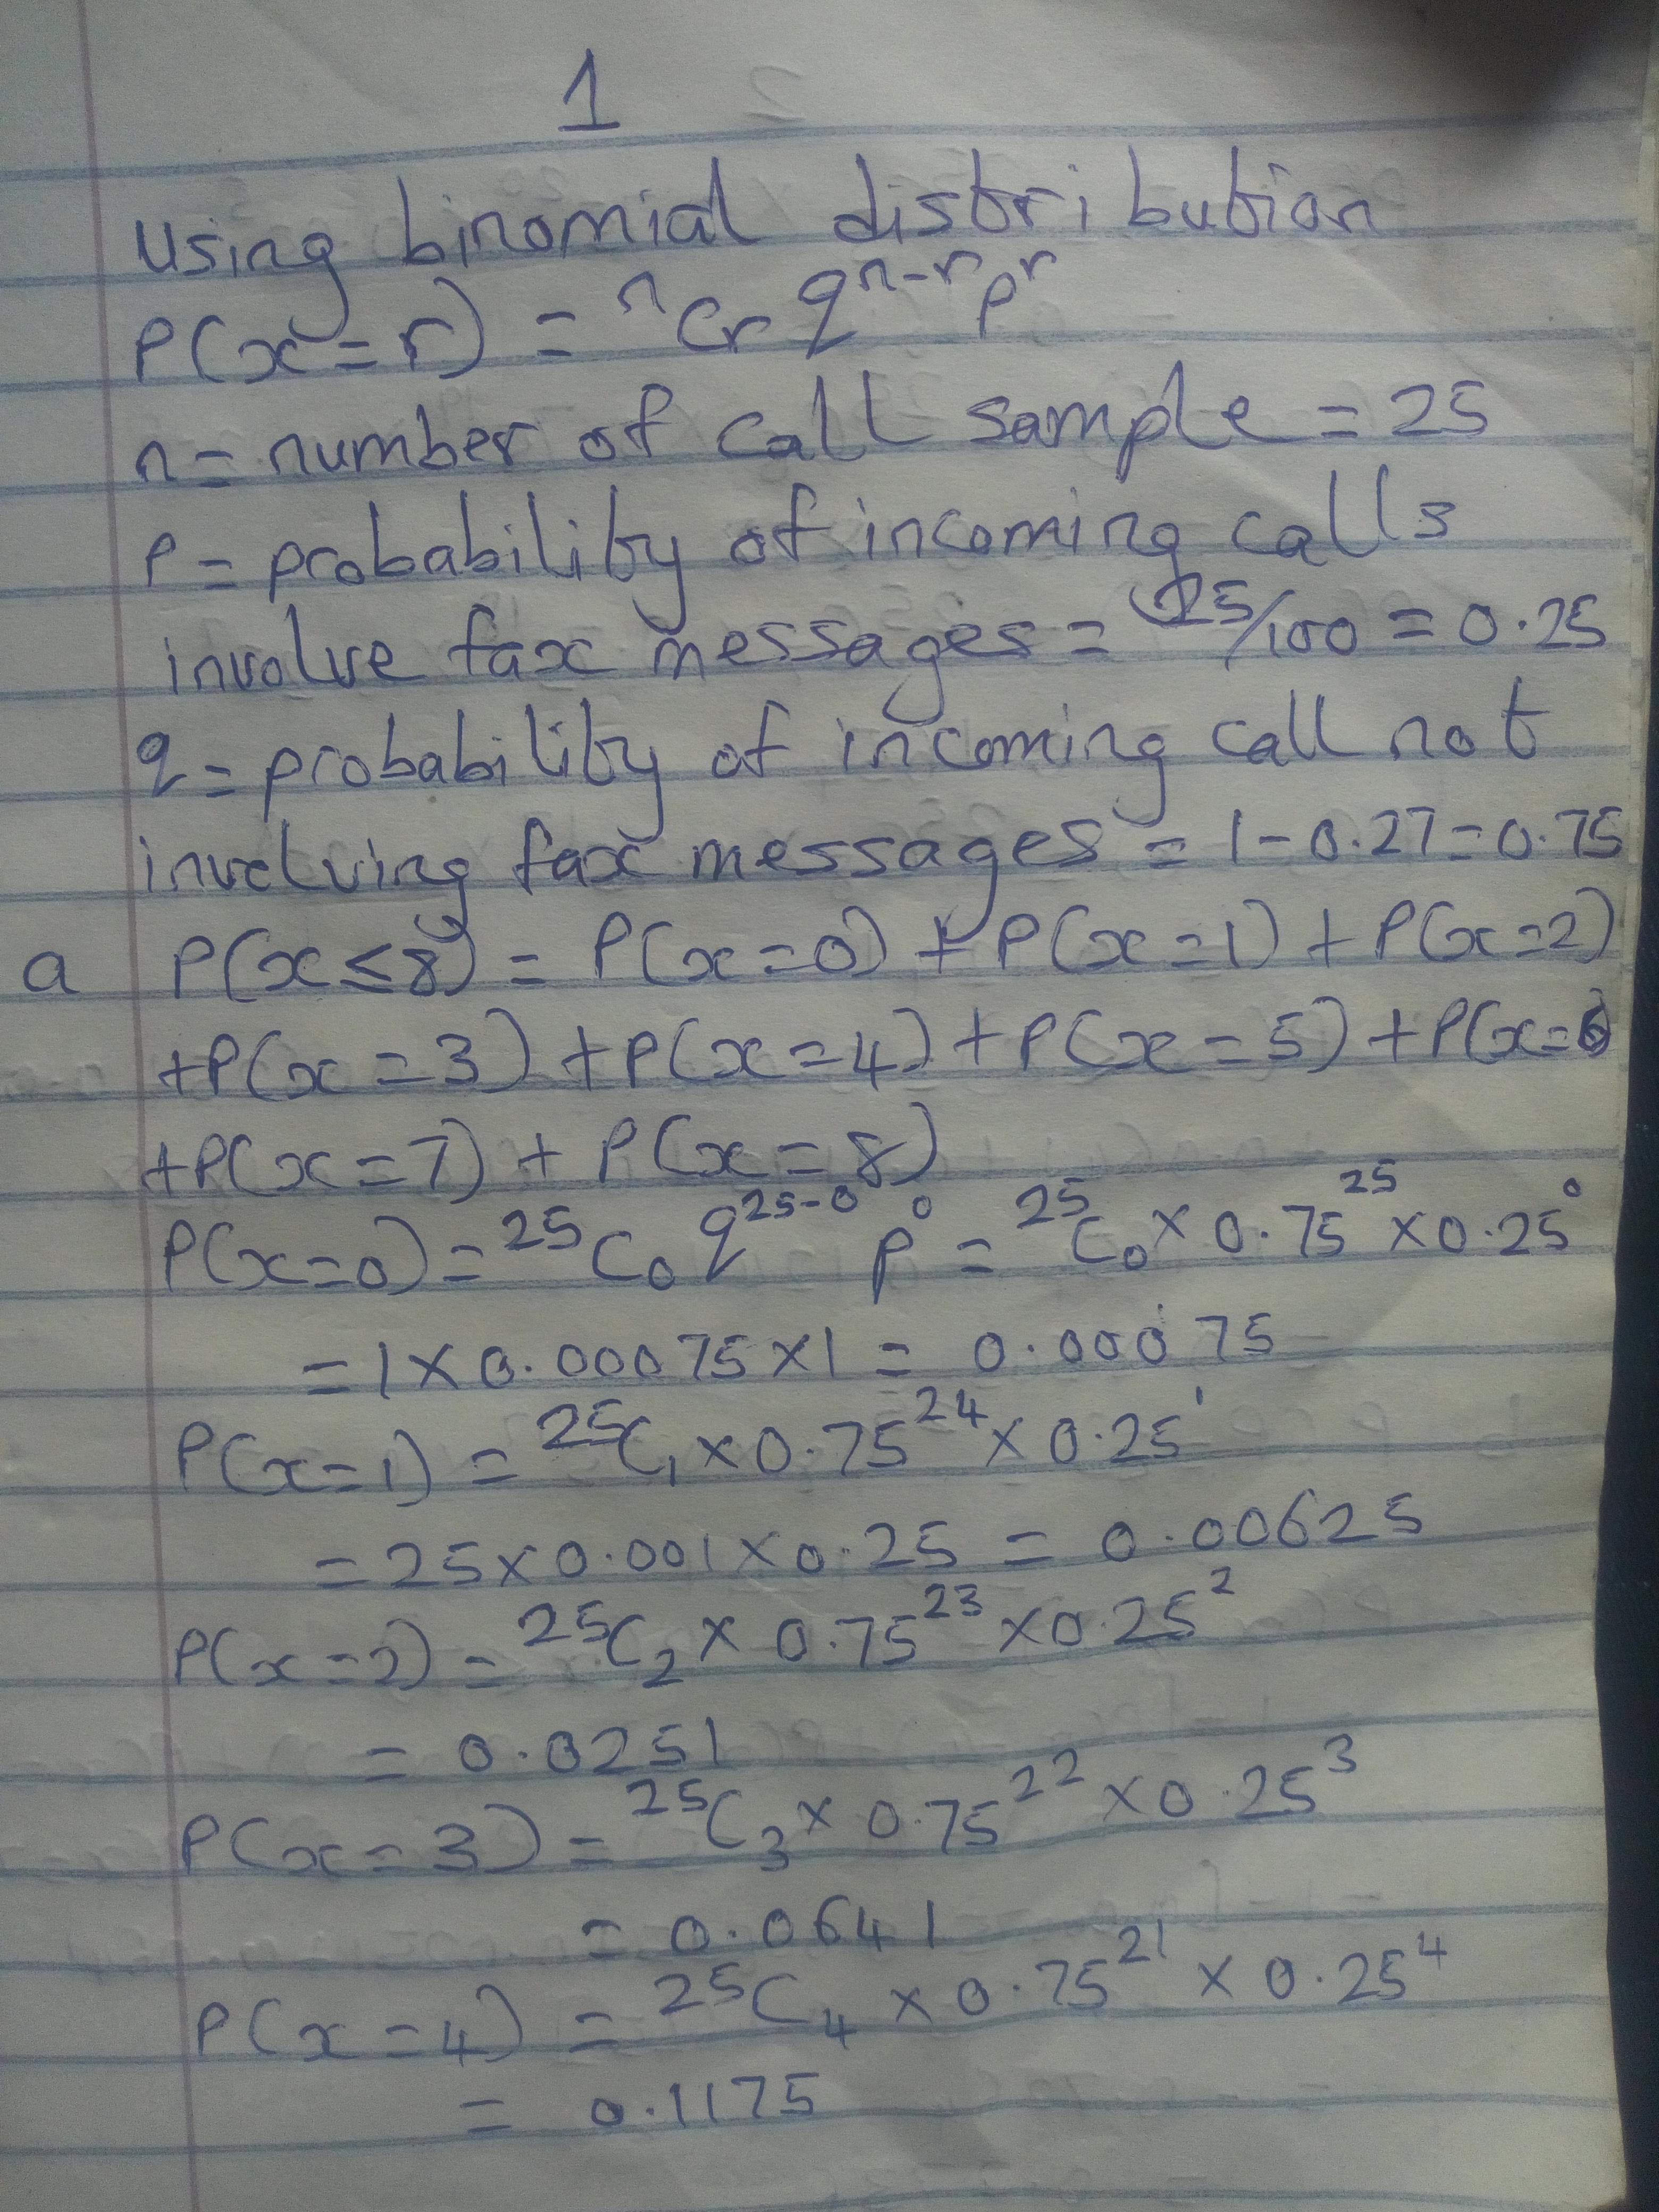 1
Using binomial distribution
P(x=r) = ⁿCr qⁿ⁻ʳ pʳ
n= number of call sample = 25
P= probability of incoming calls
involve fax messages = 25/100 = 0.25
q= probability of incoming call not
involving fax messages = 1-0.27=0.75
a P(x≤8) = P(x=0) + P(x=1) + P(x=2)
+P(x=3) +P(x=4) +P(x=5) +P(x=6
+P(x=7) + P(x=8)
P(x=0) = ²⁵C₀ q²⁵⁻⁰ p⁰ = ²⁵C₀ × 0.75²⁵ × 0.25⁰
= 1 × 0.00075 × 1 = 0.00075
P(x=1) = ²⁵C₁ × 0.75²⁴ × 0.25¹
= 25 × 0.001 × 0.25 = 0.00625
P(x=2) = ²⁵C₂ × 0.75²³ × 0.25²
= 0.0251
P(x=3) = ²⁵C₃ × 0.75²² × 0.25³
= 0.0641
P(x=4) = ²⁵C₄ × 0.75²¹ × 0.25⁴
= 0.1175